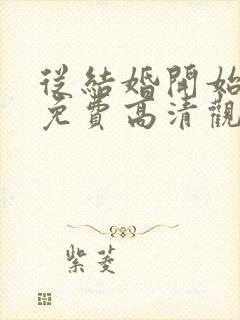 從結婚開始
免費高清觀
紫菱